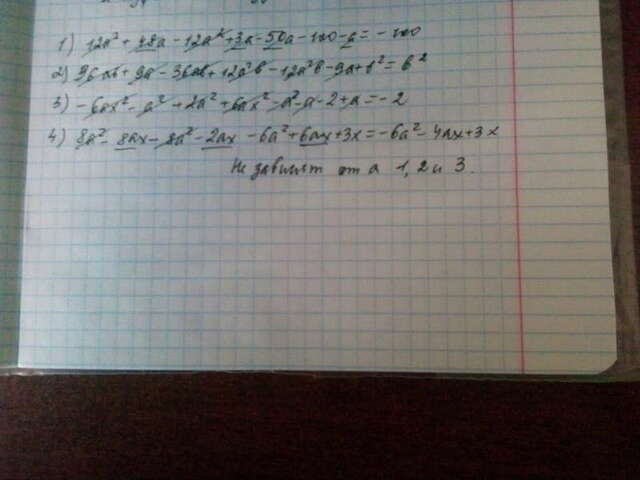 1) 12a² + 48a - 12a² + 3a - 50a - 100 - a = - 100
2) 36ab + 9a - 36ab + 12a²b - 12a²b - 9a + b² = b²
3) - 6ax² - a² + 2a² + 6ax² - a² - a - 2 + a = - 2
4) 8a² - 8ax - 8a² - 2ax - 6a² + 6ax + 3x = - 6a² - 4ax + 3x
Не зависят от a 1, 2 и 3.